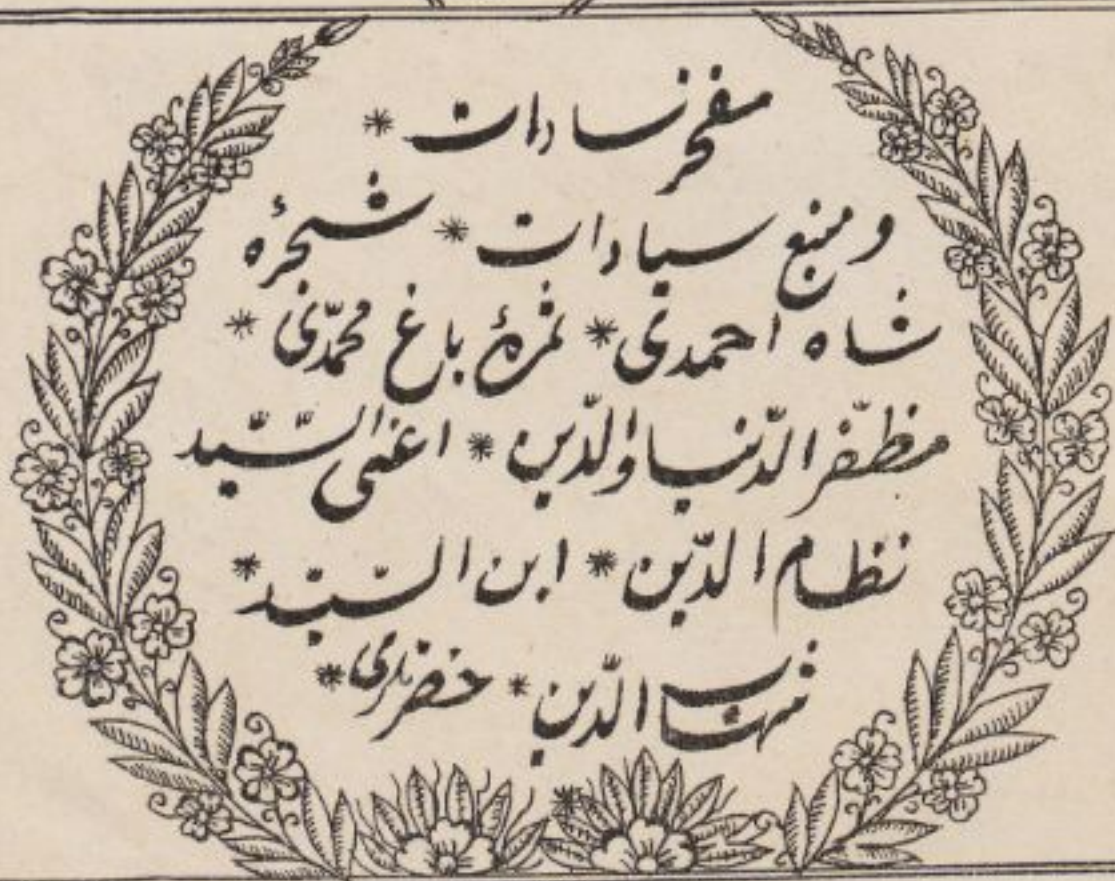 مفخر سادات *
و منبع سیادات * شجرهٔ
شاه احمدی * ثمرهٔ باغ محمّدی *
مظفّر الدّنیا والدّین * اعنی السّیّد
نظام الدّین * ابن السّیّد *
شهاب الدّین *